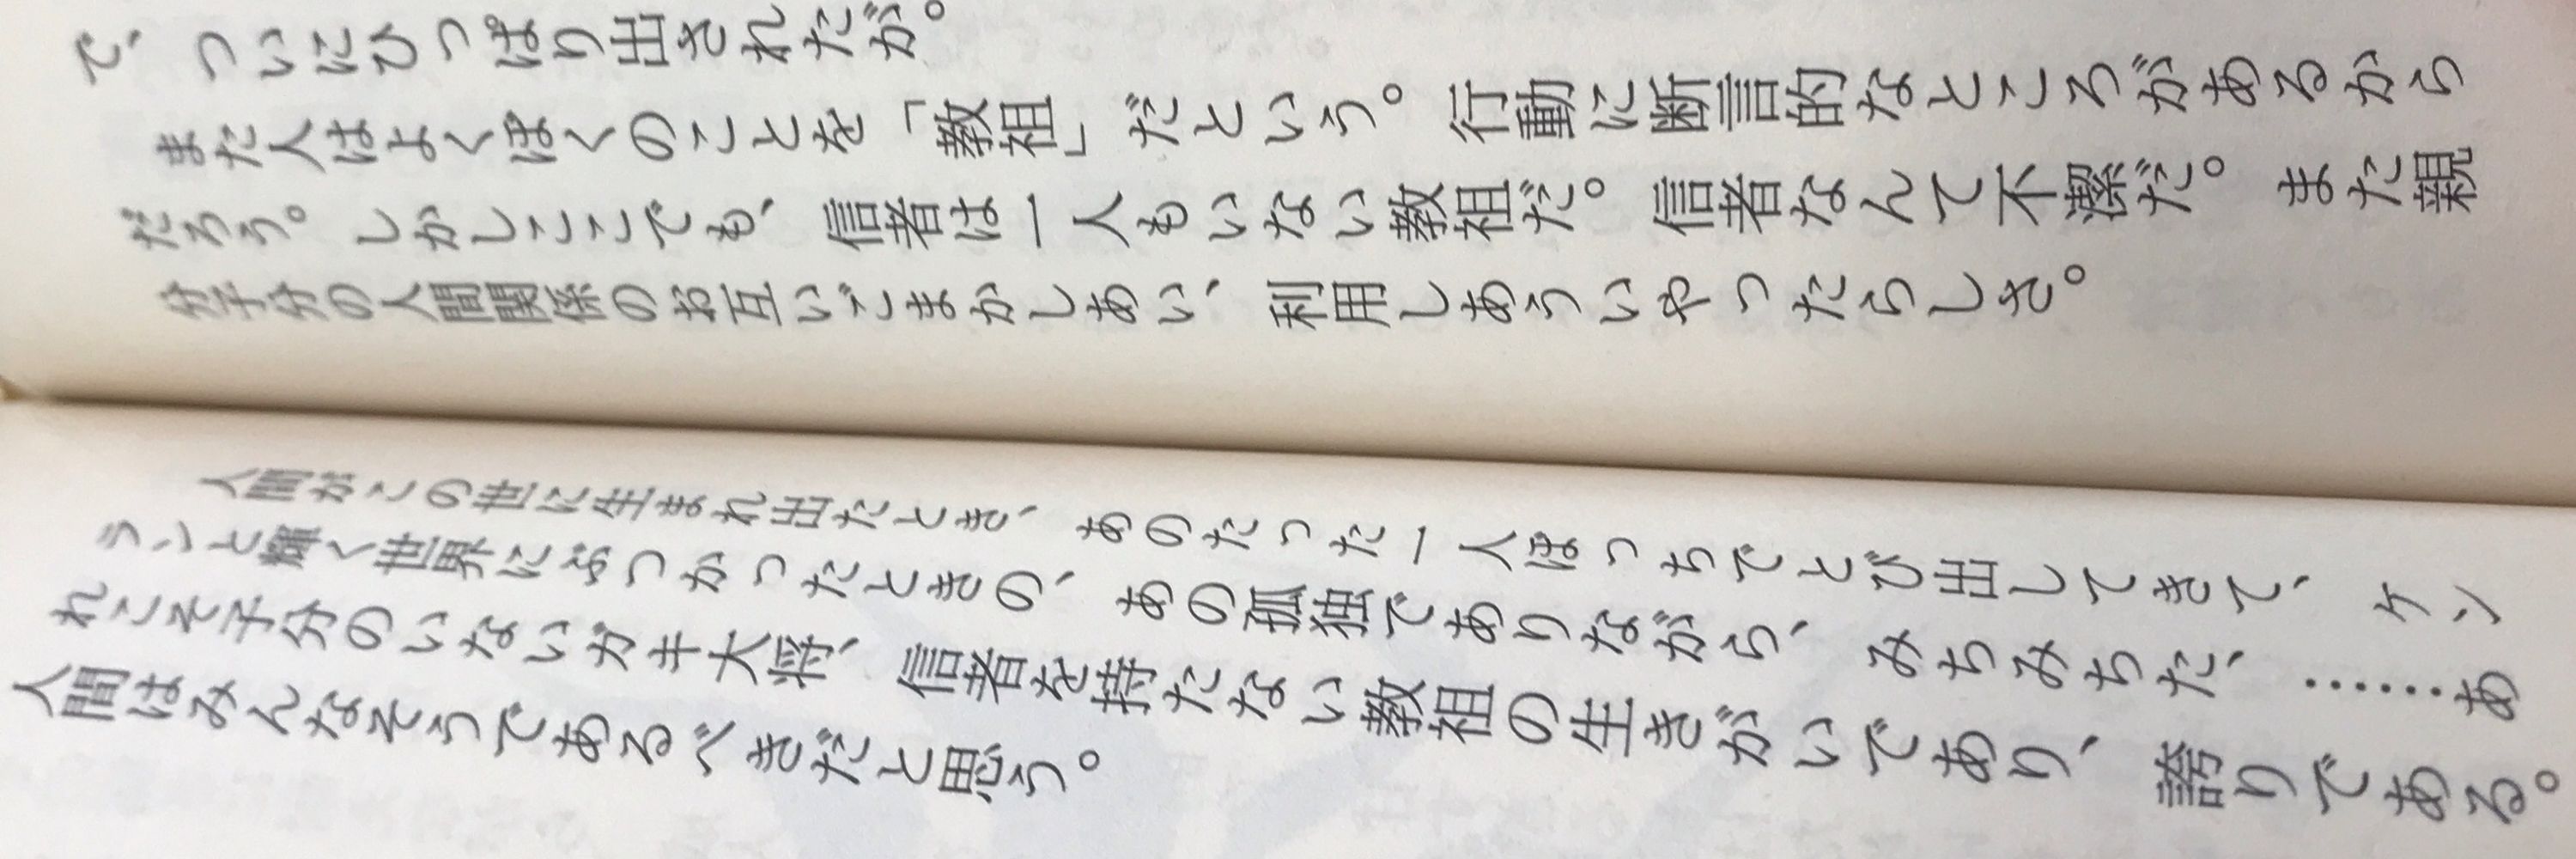 で、ついにひっぱり出されたが。
また人はよくぼくのことを「教祖」だという。行動に断言的なところがあるから
だろう。しかしここでも、信者は一人もいない教祖だ。信者なんて不潔だ。また親
分子分の人間関係のお互いごまかしあい、利用しあういやったらしさ。
人間がこの世に生まれ出たとき、あのたった一人ぼっちでとび出してきて、ケン
ランと輝く世界にぶつかったときの、あの孤独でありながら、みちみちた、……あ
れこそ子分のいないガキ大将、信者を持たない教祖の生きがいであり、誇りである。
人間はみんなそうであるべきだと思う。